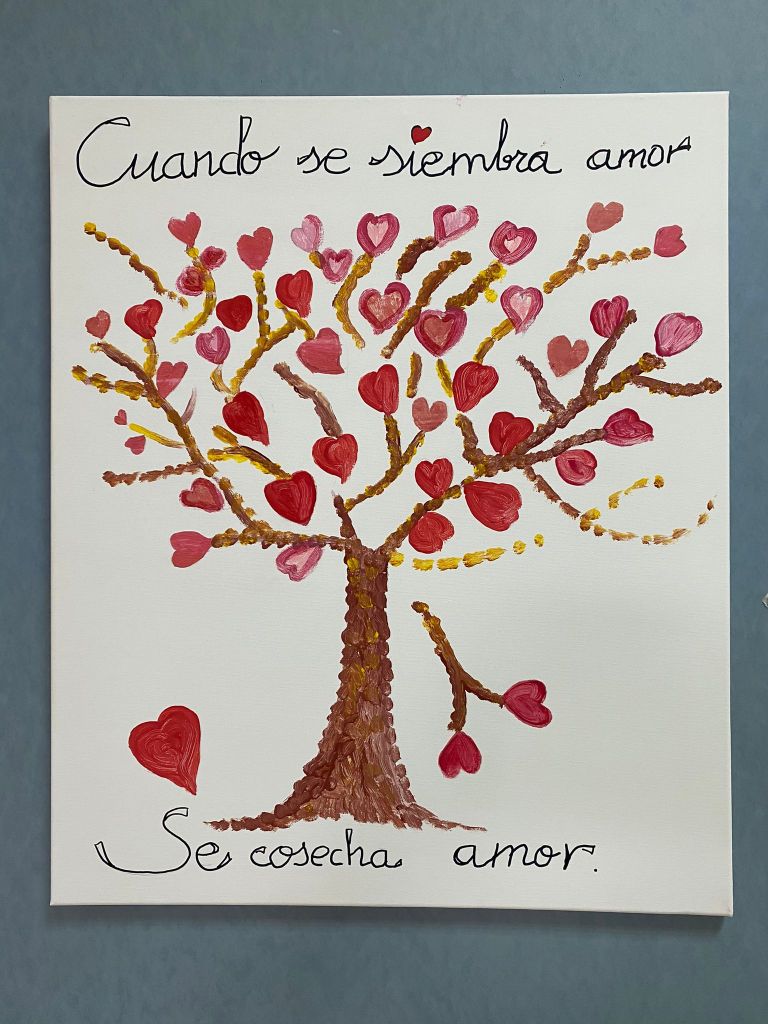 Cuando se siembra amor
Se cosecha amor.